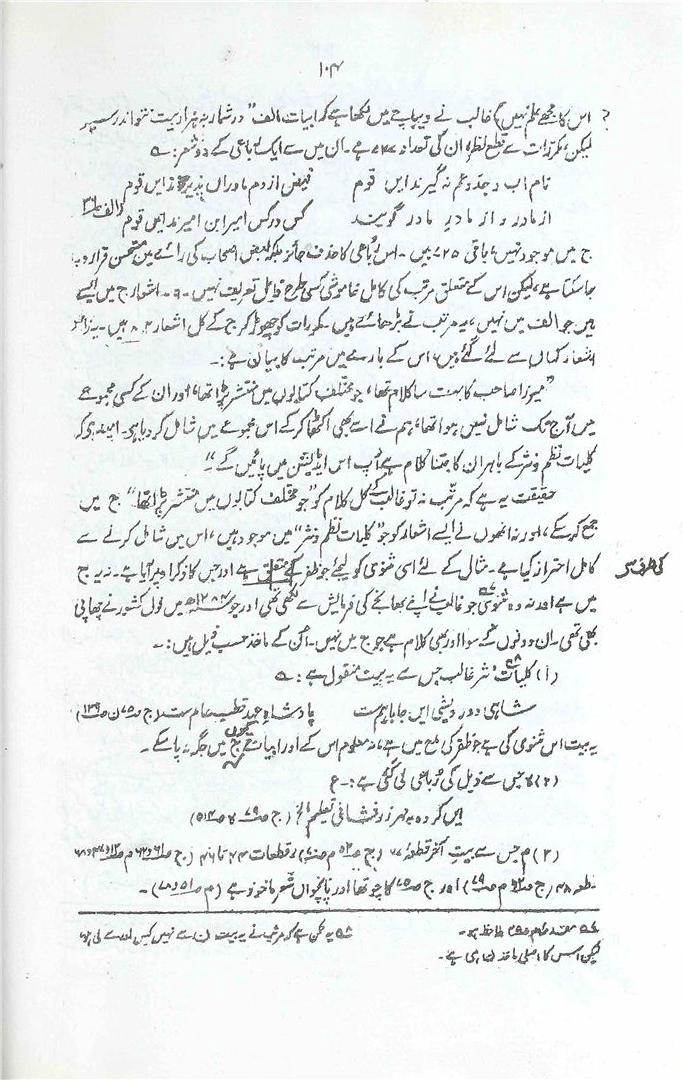 ۱۰۴
اس کا مجھے علم نہیں) غالب نے دیباچے میں لکھا ہے کہ ابیات الف "در شمار
لیکن، مکررات سے قطع نظر، ان کی تعداد ہے۔ ان میں سے ایک رباعی کے دو شعر: ے
نام اب و جد و عم نہ گیرند ایں قوم فیض از دم مادراں ایں قوم
از مادر و از مادرِ مادر گویند کس در کس امیر ابن امیرند ایں قوم
ج میں موجود نہیں، باقی ۷۲۵ ہیں۔ اس رباعی کا حذف جائز بلکہ بعض اصحاب کی رائے میں مستحسن قرار دیا
جا سکتا ہے، لیکن اس کے متعلق مرتب کی کامل خاموشی کسی طرح قابل تعریف نہیں۔ ۹۔ اشعار ج میں ایسے
ہیں جو الف میں نہیں، یہ مرتب نے بڑھائے ہیں۔ مکررات کو چھوڑ کر ج کے کل اشعار ہیں۔ یہ زائد
اشعار کہاں سے لئے گئے ہیں؟ اس کے بارے میں مرتب کا بیان ہے:۔
"میرزا صاحب کا بہت سا کلام تھا، جو مختلف کتابوں میں منتشر پڑا تھا، اور ان کے کسی مجموعے
میں آج تک شامل نہیں ہوا تھا، ہم نے اسے بھی اکٹھا کر کے اس مجموعے میں شامل کر دیا ہے۔ امید ہے کہ
کلیات نظم و نثر کے باہر ان کا جتنا کلام ہے آپ اس ایڈیشن میں پائیں گے"۔
حقیقت یہ ہے کہ مرتب نہ تو غالب کے کل کلام کو "جو مختلف کتابوں میں منتشر پڑا تھا" ج میں
جمع کر سکے، اور نہ انھوں نے ایسے اشعار کو جو "کلیات نظم و نثر" میں موجود ہیں، اس میں شامل کرنے سے
کامل احتراز کیا ہے۔ مثال کے لئے اسی مثنوی کو لیجئے جو ظفر کے متعلق ہے اور جس کا ذکر اوپر آیا ہے۔ نہ یہ ج
کی طرف سے
میں ہے اور نہ وہ مثنوی۵۷ جو غالب نے اپنے بھانجے کی فرمایش سے لکھی تھی اور جو ۱۲۸۴ھ میں نول کشور نے چھاپی
بھی تھی۔ ان دونوں کے سوا اور بھی کلام ہے جو ج میں نہیں۔ اُن کے ماخذ حسب ذیل ہیں:۔
(۱) کلیات۵۸ نثر غالب جس سے یہ بیت منقول ہے: ے
شاہی و درویشی ایں جا باہم ست پادشاہِ عہد قطبِ عالم ست (ج ص۷۵
یہ بیت اس مثنوی کی ہے جو ظفر کی مدح میں ہے، نہ معلوم اس کے اور ابیات کیوں ج میں جگہ نہ پا سکے۔
(۲) جس سے ذیل کی رباعی لی گئی ہے:۔ ع
ایں کردہ بہر زر فشانی تعلیم الخ (ج ص۷۹
(۳) م جس سے بیت آخر قطعہ ۷۷ (ج ص۵۲ م ص۷) قطعات ۲۴ تا ۴۶
قطعہ ۴۸ (ج م ص۷۹) اور ج ص۷۵ کا چوتھا اور پانچواں شعر ماخوذ ہے (م ص۵۱
لیکن اس کا اصلی ماخذ ن ہی ہے۔
۵۸ یہ ممکن ہے کہ مرتب نے یہ بیت ن سے نہیں کہیں اور سے لی ہو